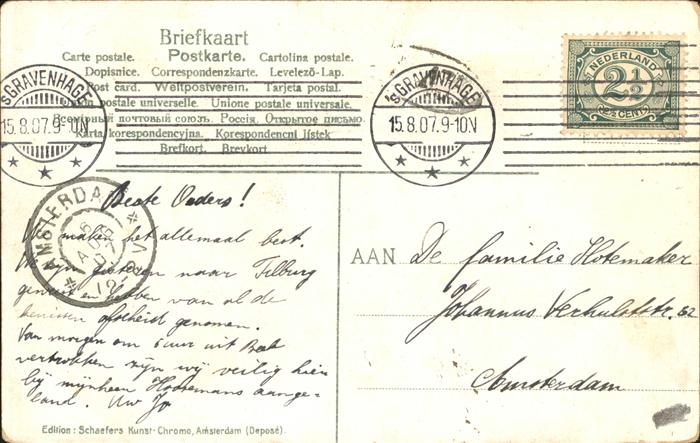 Briefkaart
Carte postale. Postkarte. Cartolina postale.
Dopisnice. Correspondenzkarte. Levelező-Lap.
Post card. Weltpostverein. Tarjeta postal.
Union postale universelle. Unione postale universale.
Всемірный почтовый союзъ. Россія. Открытое письмо.
Karta korespondencyjna. Korespondenční lístek
Brefkort. Brevkort.
'sGRAVENHAGE
15.8.07.9-10N
'sGRAVENHAGE
15.8.07.9-10N
NEDERLAND
2½
CENT
AMSTERDAM
Beste Ouders!
We maken het allemaal best.
Wij zijn gisteren naar Tilburg
geweest en hebben van al de
kennissen afscheid genomen.
Van morgen om 6 uur uit
vertrokken zijn wij veilig hier
bij mijnheer Hoosemans aange-
land. Uw Jo
AAN De familie Hotemaker
Johannus Verhulststr. 32
Amsterdam
Edition: Schaefers Kunst-Chromo, Amsterdam (Deposé).